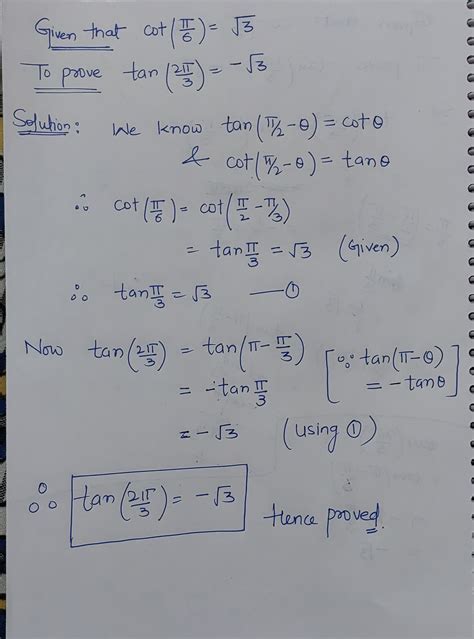 Given that cot(π/6) = √3
To prove tan(2π/3) = -√3
Solution: We know tan(π/2 - θ) = cotθ
& cot(π/2 - θ) = tanθ
∴ cot(π/6) = cot(π/2 - π/3)
= tan π/3 = √3 (Given)
∴ tan π/3 = √3 — ①
Now tan(2π/3) = tan(π - π/3) [∵ tan(π-θ)
= -tan π/3 = -tanθ]
= -√3 (using ①)
∴ tan(2π/3) = -√3
Hence proved.